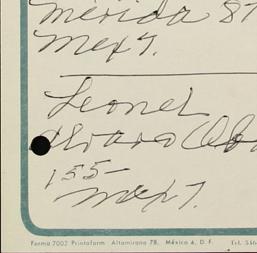 Merida 87
Mex 7.
Leonel
Alvaro Ob
155-
Mex 7.
Forma 7002 Printaform Altamirano 78, México 4, D. F. Tel. 546